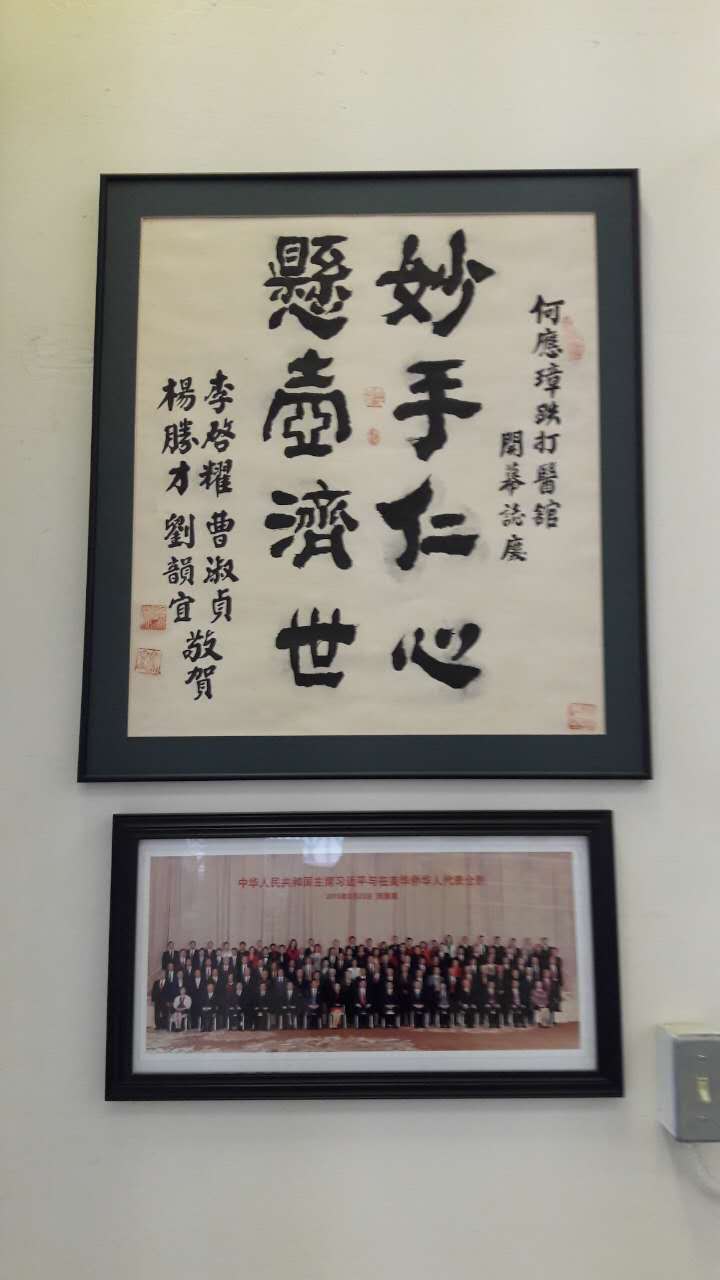 何應璋跌打醫舘
開幕誌慶
妙手仁心
懸壺濟世
李啓耀 曹淑貞
楊勝才 劉韻宜
敬賀
中华人民共和国主席习近平与在美华侨华人代表合影